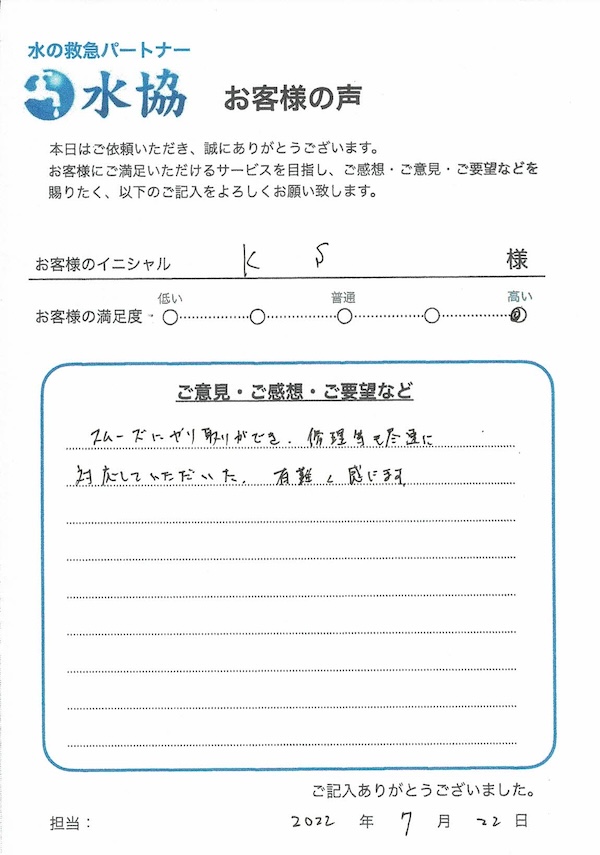 水の救急パートナー
水協 お客様の声
本日はご依頼いただき、誠にありがとうございます。
お客様にご満足いただけるサービスを目指し、ご感想・ご意見・ご要望などを
賜りたく、以下のご記入をよろしくお願い致します。
お客様のイニシャル K S 様
低い 普通 高い
お客様の満足度
ご意見・ご感想・ご要望など
スムーズにやり取りができ、修理等も早速に
対応していただいた。有難く感じます
ご記入ありがとうございました。
担当： 2022 年 7 月 22 日